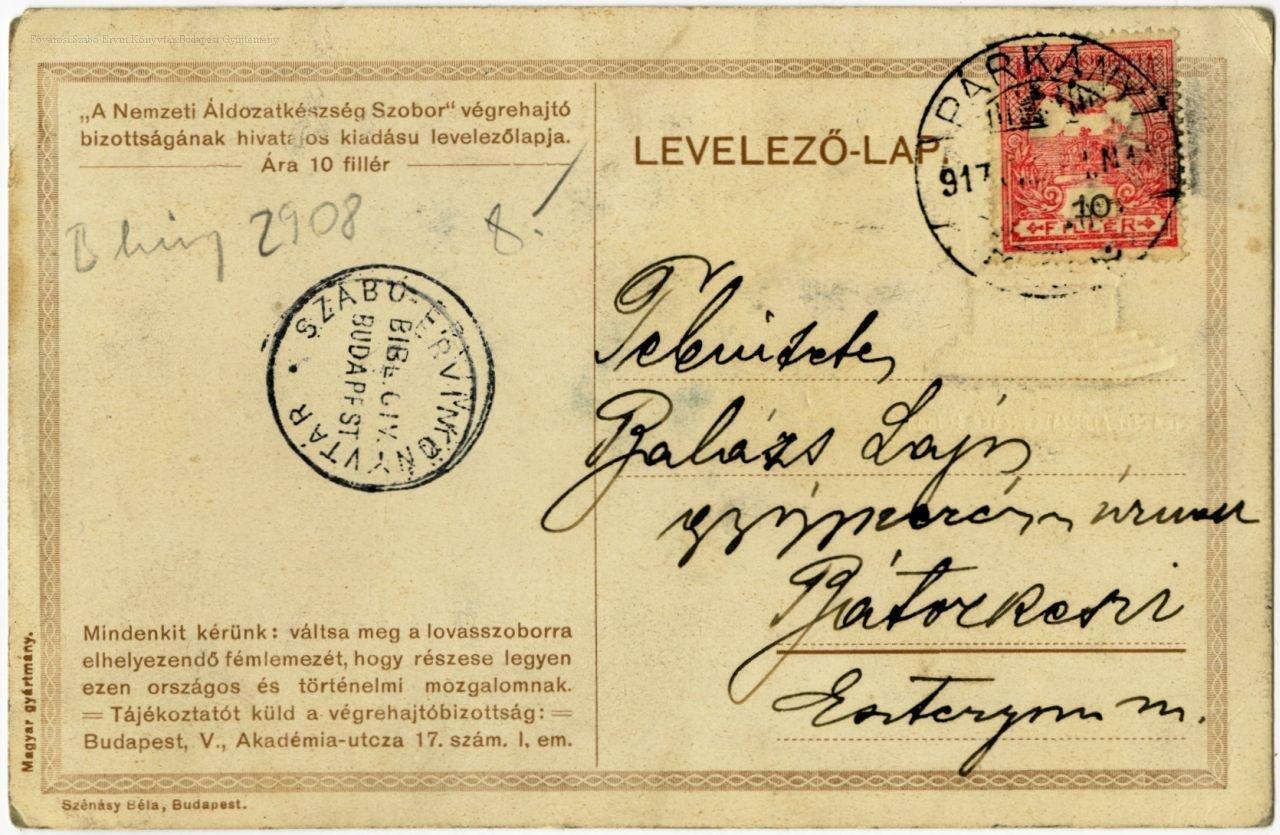 Fővárosi Szabó Ervin Könyvtár Budapest Gyűjtemény
„A Nemzeti Áldozatkészség Szobor" végrehajtó
bizottságának hivatalos kiadásu levelezőlapja.
Ára 10 fillér
LEVELEZŐ-LAP.
PÁRKÁNY
917
10
FILLÉR
2908
8.
SZABÓ ERVIN KÖNYVTÁR
BUDAPEST
Tekintetes
Balázs Lajos
úrnak
Bátorkeszi
Esztergom m.
Mindenkit kérünk: váltsa meg a lovasszoborra
elhelyezendő fémlemezét, hogy részese legyen
ezen országos és történelmi mozgalomnak.
= Tájékoztatót küld a végrehajtóbizottság: =
Budapest, V., Akadémia-utcza 17. szám. I. em.
Magyar gyártmány.
Szénásy Béla, Budapest.